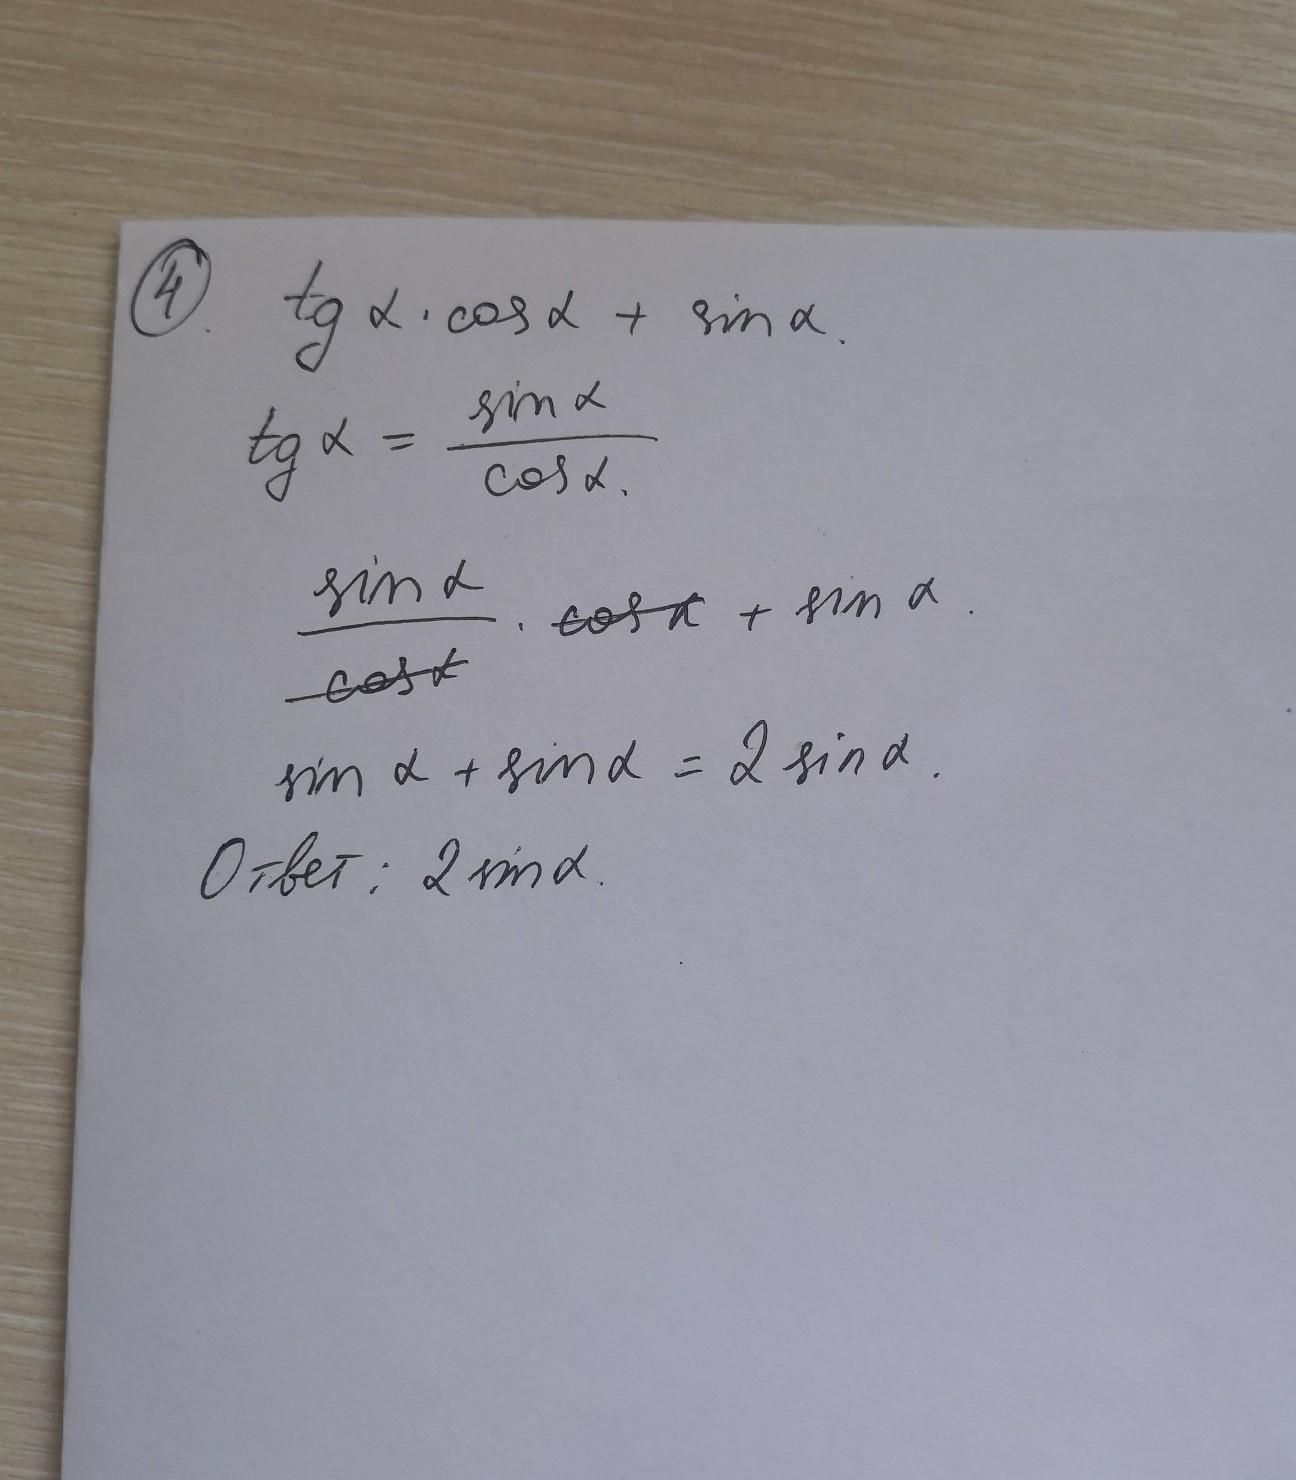 4. tg α · cos α + sin α.
tg α = sin α / cos α.
sin α / cos α · cos α + sin α.
sin α + sin α = 2 sin α.
Ответ: 2 sin α.